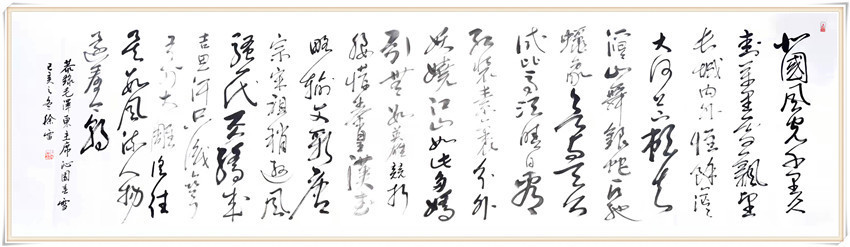 北國風光千里冰
封萬里雪飄望
长城内外惟馀莽
大河上下顿失
滔山舞銀蛇原驰
蠟象欲与天公
试比高须晴日看
红装素裹分外
妖娆江山如此多嬌
引無数英雄競折
腰惜秦皇漢武
略输文彩唐
宗宋祖稍逊風
骚一代天驕成
吉思汗只識弯
弓射大雕俱往
矣数風流人物
还看今朝
恭錄毛澤東主席沁園春雪
己亥之冬徐雪